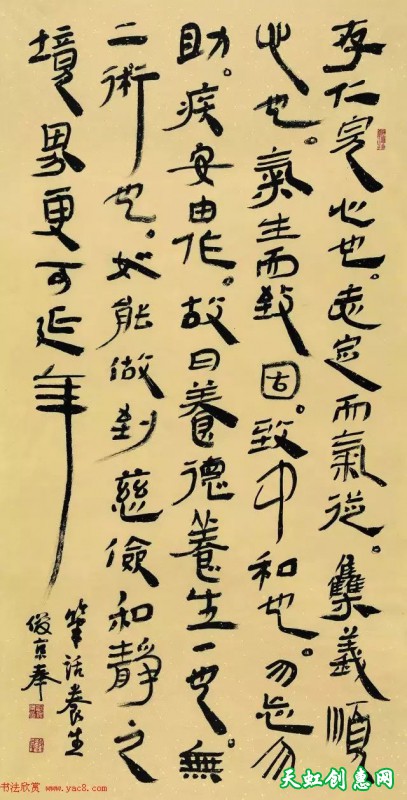 存仁完心也。志定而氣從。雧義順
心也。氣生而致固。致中和也。勿忘勿
助。疾安由作。故曰養德養生一也。無
二術也。如能做到慈儉和靜之
境界更可延年
筆話養生
俊京奉
书法欣赏 www.yac8.com
天虹创惠网